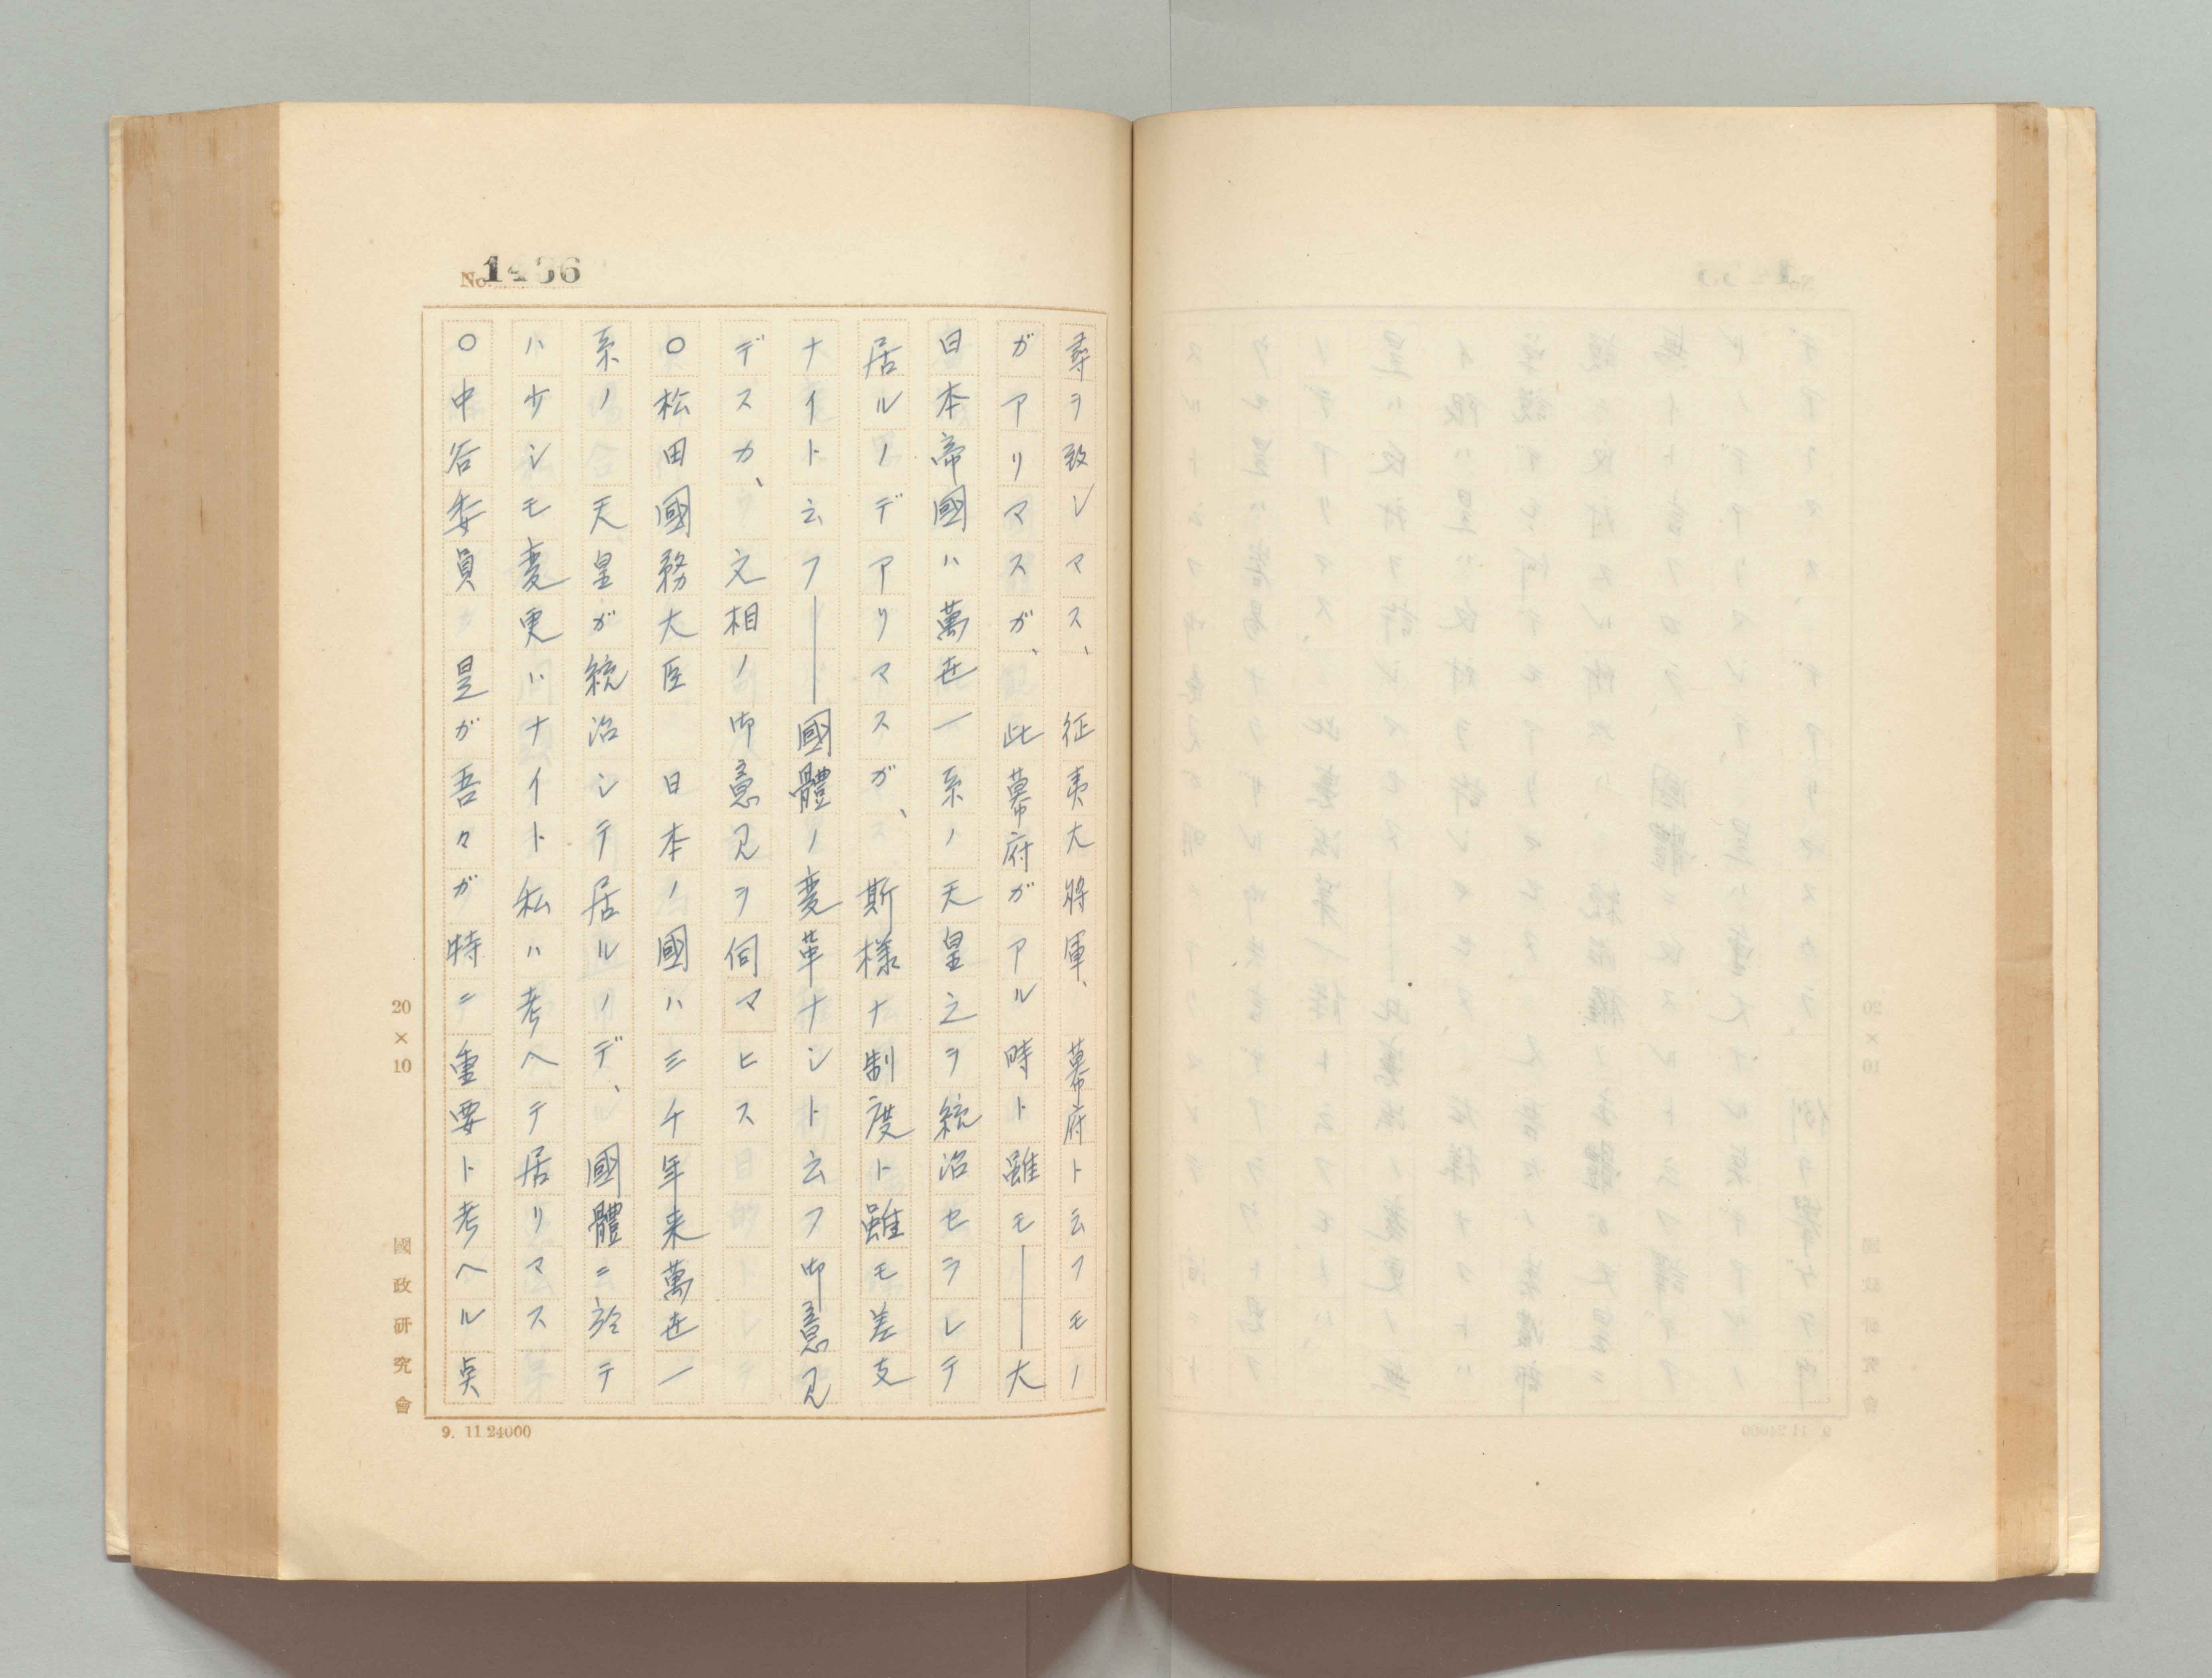 No. 1436
尋ヲ致シマス、征夷大將軍、幕府ト云フモノ
ガアリマスガ、此幕府ガアル時ト雖モ――大
日本帝國ハ萬世一系ノ天皇之ヲ統治セラレテ
居ルノデアリマスガ、斯様ナ制度ト雖モ差支
ナイト云フ――國體ノ変革ナシト云フ御意見
デスカ、文相ノ御意見ヲ伺マヒス
○松田國務大臣 日本ノ國ハ三千年来萬世一
系ノ天皇ガ統治シテ居ルノデ、國體ニ於テ
ハ少シモ変更ハナイト私ハ考ヘテ居リマス
○中谷委員 是ガ吾々ガ特ニ重要ト考ヘル点
20×10
國政研究會
9. 11.24000